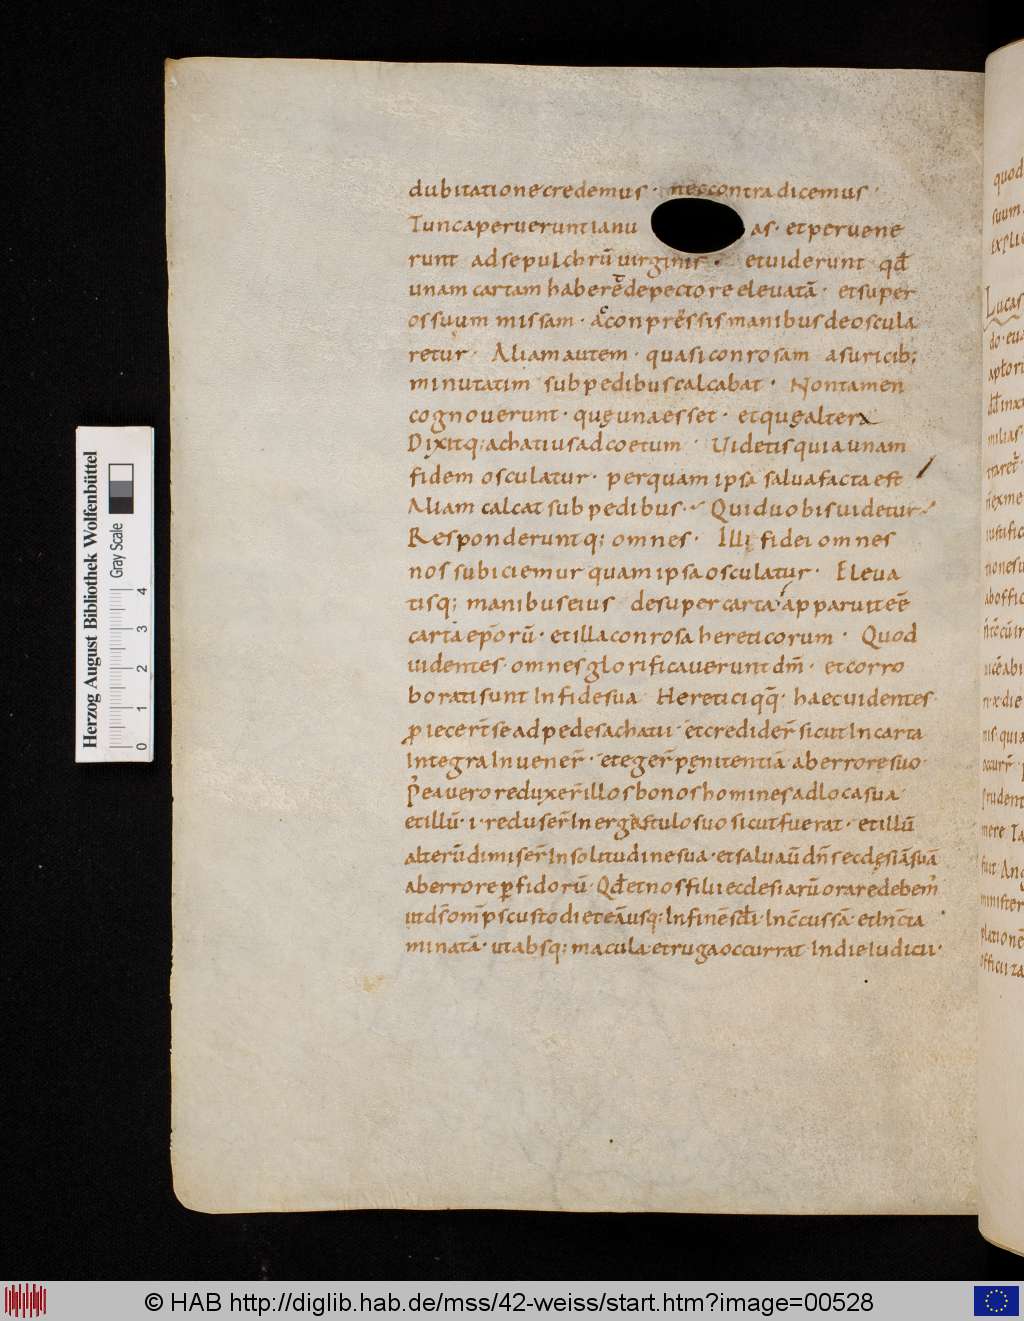 dubitationecredemus · neccontradicemus ·
Tuncaperueruntianu as · etperuene
runt adsepulchrū uirginis · etuiderunt qđ
unam cartam haberet depectore eleuatā · etsuper
os suum missam · ac conpressis manibus deoscula
retur · Aliam autem · quasi con rosam asuricib;
minutatim sub pedibus calcabat · Non tamen
cognouerunt · quę una esset · et quę altera
Dixitq; achatius ad coetum · Uidetis quia unam
fidem osculatur · per quam ipsa salua facta est
Aliam calcat sub pedibus · Quid uobis uidetur
Responderuntq; omnes · Illi fidei omnes
nos subiciemur quam ipsa osculatur · Eleua
tisq; manibus eius desuper carta apparuit eē
carta ep̄orū · et illa con rosa hereticorum · Quod
uidentes · omnes glorificauerunt dm̄ · et corro
borati sunt In fide sua Heretici qq̄ · haec uidentes
piecer̄ se ad pedes achatii · et credider̄ sicut In carta
Integra Inuener̄ · et eger̄ pęnitentiā ab errore suo ·
P̄ea uero reduxer̄ illos bonos homines ad loca sua ·
et illū · i · reduser̄ In ergastulo suo sicut fuerat · et illū
alterū dimiser̄ In solitudine sua · et saluaū dn̄s ecclęsiā suā
ab errore perfidorū · Qđ et nos filii ecclesiarū orare debem̓
ut ds̄ om̄ps custodiet eā usq; In finē scđi · Inc̄cussā · et Inc̄ta
minatā · ut absq; macula et ruga occurrat In die Iudicii ·
quod
suum
explic
Lucas
do · eu
milias
iustific
tiones
ab offic
nis · quia
occurr̄
prudent
mere
fuit Ang
minister
platione
officii
Herzog August Bibliothek Wolfenbüttel
Gray Scale
0 1 2 3 4
© HAB http://diglib.hab.de/mss/42-weiss/start.htm?image=00528